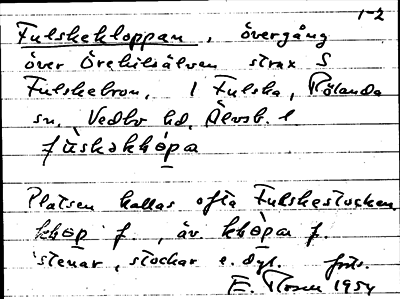 1-2
Fulskekloppan, övergång
över Örekilsälven strax S
Fulskebron, l Fulska, Rölanda
sn, Vedbo hd, Älvsb. l
fùskəkḷɔpa
Platsen kallas ofta Fulskestocken
kḷɔp f., äv. kḷɔpa f.
stenar, stockar e. dyl. förs.
E. Rosen 1954